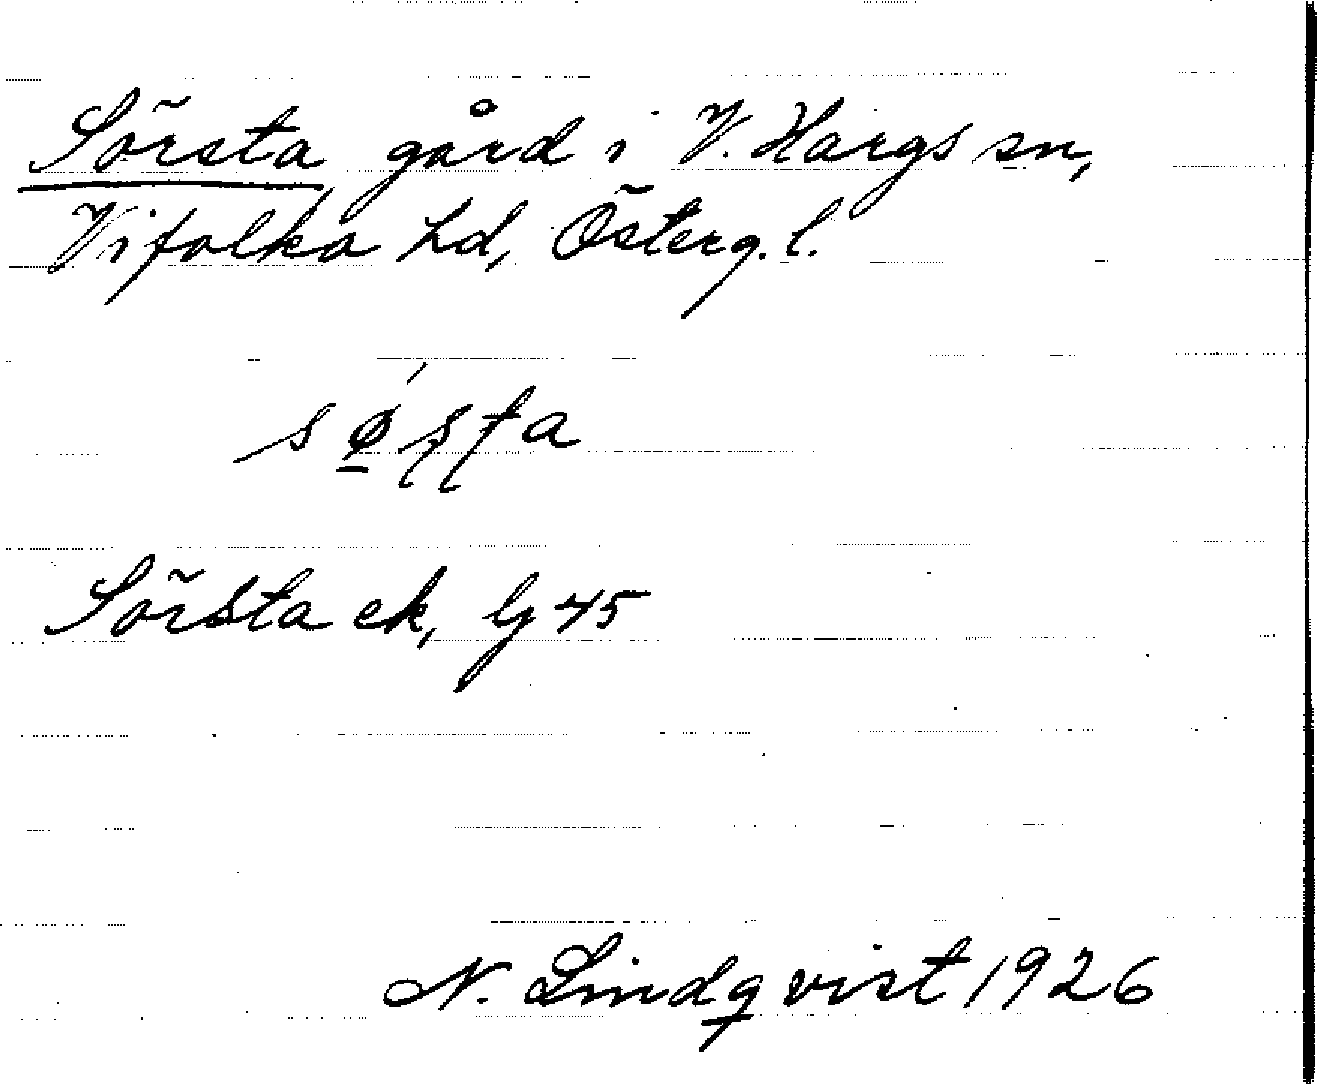 Sörsta, gård i V. Hargs sn,
Vifolka hd, Österg. l.
sǿ̱ʂʈa
Sörsta ek, lj 45
N. Lindqvist 1926